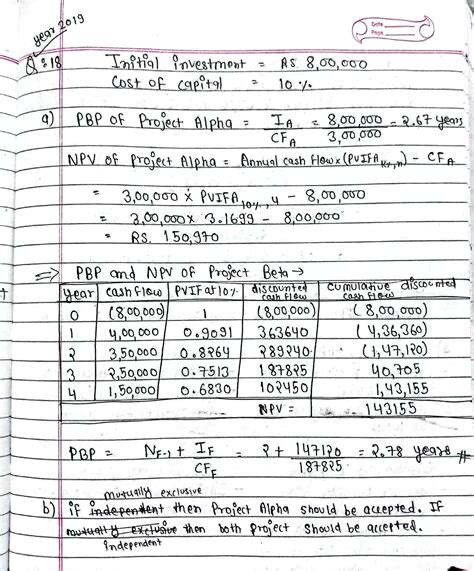 year 2019
Date
Page
Q:18 Initial investment = RS. 8,00,000
Cost of capital = 10 %
a) PBP of Project Alpha = I_A / CF_A = 8,00,000 / 3,00,000 = 2.67 years
NPV of Project Alpha = Annual cash flow × (PVIFA_Kr,n) - CF_A
= 3,00,000 × PVIFA_10%,4 - 8,00,000
= 3,00,000 × 3.1699 - 8,00,000
= RS. 150,970
⇒ PBP and NPV of Project Beta →
year cash flow PVIF at 10% discounted cash flow cumulative discounted cash flow
0 (8,00,000) 1 (8,00,000) (8,00,000)
1 4,00,000 0.9091 363640 (4,36,360)
2 3,50,000 0.8264 289240 (1,47,120)
3 2,50,000 0.7513 187825 40,705
4 1,50,000 0.6830 102450 1,43,155
NPV = 143155
PBP = N_F-1 + I_F / CF_F = 2 + 147120 / 187825 = 2.78 years #
mutually exclusive
b) if independent then Project Alpha should be accepted. If
mutually exclusive then both project should be accepted.
independent